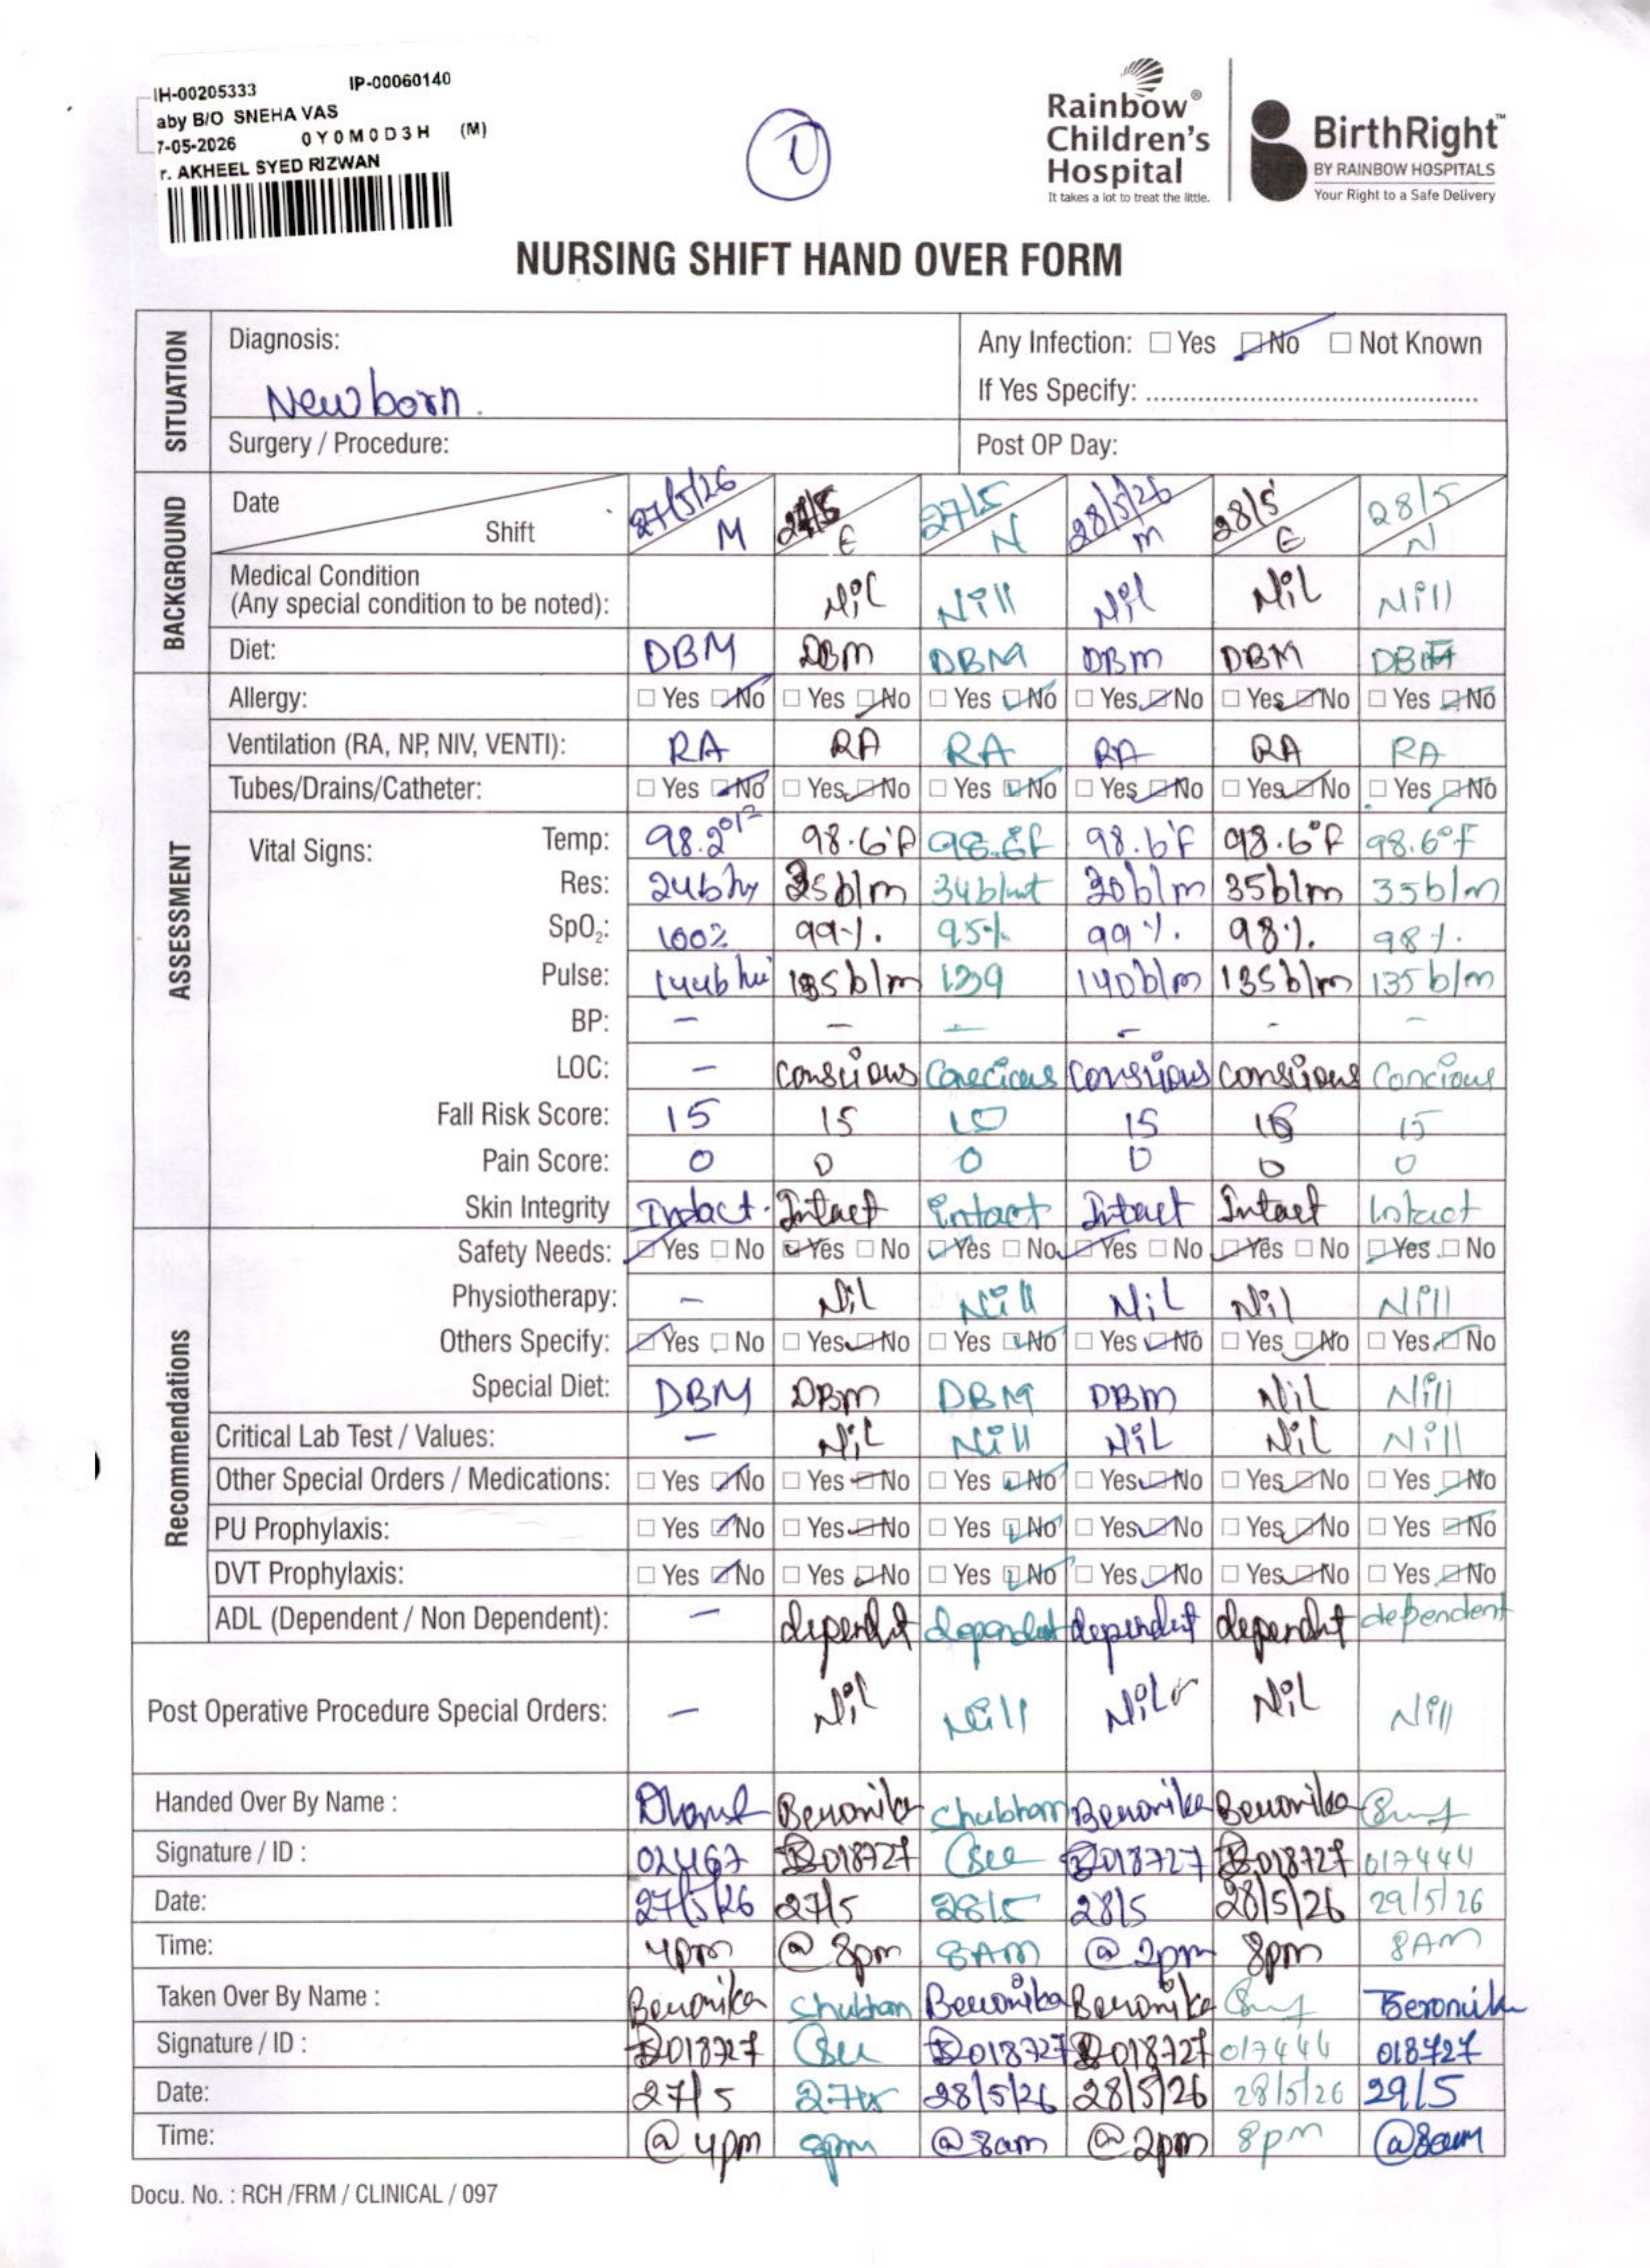 IH-00205333 IP-00060140
aby B/O SNEHA VAS
7-05-2026 0Y0M0D3H (M)
r. AKHEEL SYED RIZWAN
1
Rainbow® Children's Hospital
It takes a lot to treat the little.
BirthRight™
BY RAINBOW HOSPITALS
Your Right to a Safe Delivery
NURSING SHIFT HAND OVER FORM
SITUATION
Diagnosis: Newborn.
Any Infection: Yes No Not Known
If Yes Specify:
Surgery / Procedure: Post OP Day:
BACKGROUND
Date 27/5/26 27/5 27/5 28/5/26 28/5 28/5
Shift M E N M E N
Medical Condition
(Any special condition to be noted): Nil Nill Nil Nil Nill
Diet: DBM DBm DBM DBm DBM
ASSESSMENT
Allergy: Yes No Yes No Yes No Yes No Yes No Yes No
Ventilation (RA, NP, NIV, VENTI): RA RA RA RA RA RA
Tubes/Drains/Catheter: Yes No Yes No Yes No Yes No Yes No Yes No
Vital Signs:
Temp: 98.2°F 98.6°F 98.6°F 98.6°F 98.6°F
Res: 24b/m 35b/m 34b/mt 30b/m 35b/m 35b/m
SpO₂: 100% 99% 95% 99% 98% 98%
Pulse: 144b/m 135b/m 139 140b/m 135b/m 135b/m
BP: – – – – – –
LOC: – conscious Conscious conscious Concious
Fall Risk Score: 15 15 15 15 15
Pain Score: 0 0 0 0 0 0
Skin Integrity Intact. Intact intact Intact Intact Intact
Recommendations
Safety Needs: Yes No Yes No Yes No Yes No Yes No Yes No
Physiotherapy: – Nil Nill Nil Nil Nill
Others Specify: Yes No Yes No Yes No Yes No Yes No Yes No
Special Diet: DBM DBm DBM DBM Nil Nill
Critical Lab Test / Values: – Nil Nill Nil Nil Nill
Other Special Orders / Medications: Yes No Yes No Yes No Yes No Yes No Yes No
PU Prophylaxis: Yes No Yes No Yes No Yes No Yes No Yes No
DVT Prophylaxis: Yes No Yes No Yes No Yes No Yes No Yes No
ADL (Dependent / Non Dependent): – dependent dependent dependent
Post Operative Procedure Special Orders: – Nil Nill Nil Nil Nill
Handed Over By Name : Beronika Chubham Beronika Beronika
Signature / ID : 02467 018727 018727 018727 017444
Date: 27/5/26 27/5 28/5 28/5 28/5/26 29/5/26
Time: 4pm @ 8pm 8AM @ 2pm 8pm 8AM
Taken Over By Name : Beronika Chubham Beronika Beronika Beronika
Signature / ID : 018727 018727 018727 017444 018727
Date: 27/5 28/5/26 28/5/26 28/5/26 29/5
Time: @ 4pm 8pm @ 8am @ 2pm 8pm @8am
Docu. No. : RCH /FRM / CLINICAL / 097